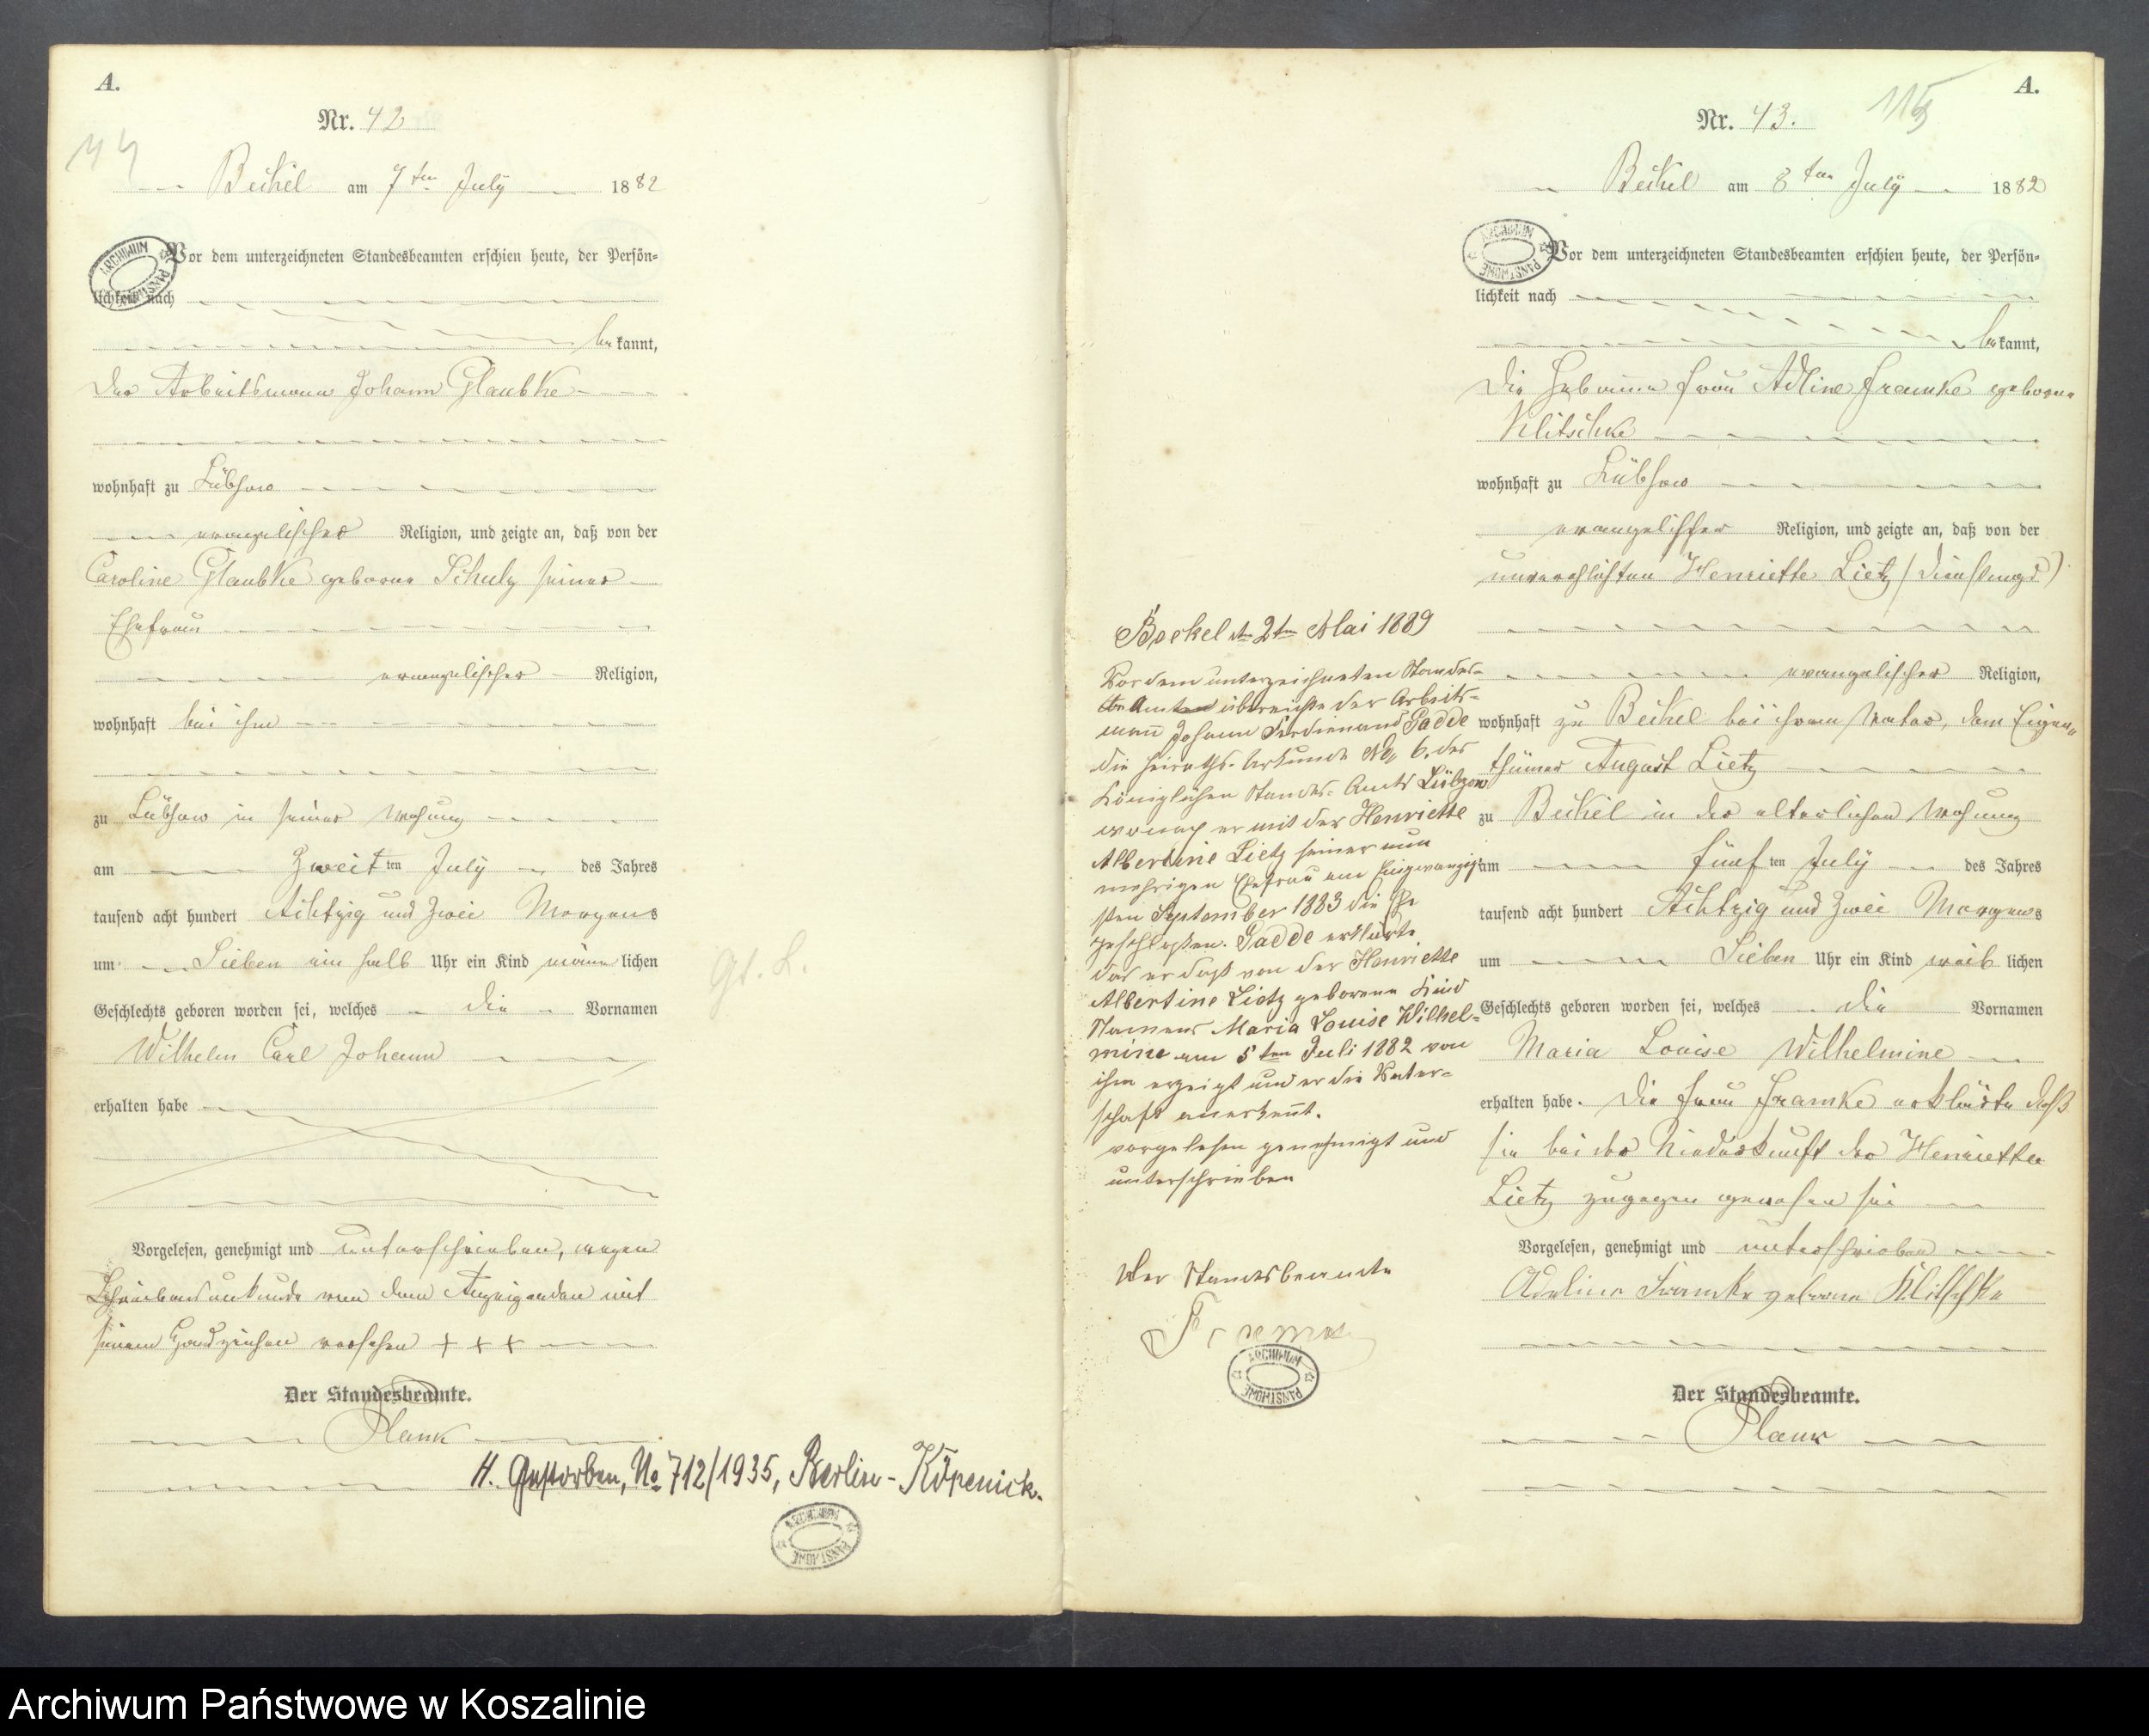 A.
Nr. 42
44
Beckel am 7ten July 1882
ARCHIWUM PAŃSTWOWE
Vor dem unterzeichneten Standesbeamten erschien heute, der Persön-
lichkeit nach
bekannt,
der Arbeitsmann Johann Glaubke
wohnhaft zu Lübzow
evangelischer Religion, und zeigte an, daß von der
Caroline Glaubke geborne Schulz seiner
Ehefrau
evangelischer Religion,
wohnhaft bei ihm
zu Lübzow in seiner Wohnung
am Zweit ten July des Jahres
tausend acht hundert Achtzig und Zwei Morgens
um Sieben ein halb Uhr ein Kind männlichen
Geschlechts geboren worden sei, welches die Vornamen
Wilhelm Carl Johann
erhalten habe
Vorgelesen, genehmigt und unterschrieben, wegen
Schreibensunkunde von dem Anzeigenden mit
seinem Handzeichen versehen + + +
Der Standesbeamte.
Plank
H. Gestorben, No 712/1935, Berlin-Köpenick.
ARCHIWUM PAŃSTWOWE
A.
Nr. 43.
115
Beckel am 8ten July 1882
ARCHIWUM PAŃSTWOWE
Vor dem unterzeichneten Standesbeamten erschien heute, der Persön-
lichkeit nach
bekannt,
die Hebamme Frau Adline Framke geborne
Klitschke
wohnhaft zu Lübzow
evangelischer Religion, und zeigte an, daß von der
unverehlichten Henriette Lietz (Dienstmagd)
evangelischer Religion,
wohnhaft zu Beckel bei ihrem Vater, dem Eigen-
thümer August Lietz
zu Beckel in der elterlichen Wohnung
am fünf ten July des Jahres
tausend acht hundert Achtzig und Zwei Morgens
um Sieben Uhr ein Kind weiblichen
Geschlechts geboren worden sei, welches die Vornamen
Maria Louise Wilhelmine
erhalten habe. Die Frau Framke erklärte daß
sie bei der Niederkunft der Henriette
Lietz zugegen gewesen sei
Vorgelesen, genehmigt und unterschrieben
Adeline Framke geborne Klitschke
Der Standesbeamte.
Plank
Beckel den 2ten Mai 1889
Vor dem unterzeichneten Standes-
Amt überreichte der Arbeits-
mann Johann Ferdinand Gadde
die Heiraths-Urkunde No 6. des
Königlichen Standes-Amts Lübzow
wonach er mit der Henriette
Albertine Lietz seiner nun
mehrigen Ehefrau am Einzwanzig-
sten September 1883 die Ehe
geschlossen. Gadde erklärte
das er daß von der Henriette
Albertine Lietz geborene Kind
Namens Maria Louise Wilhel-
mine am 5ten Juli 1882 von
ihm erzeigt und er die Vater-
schaft anerkent.
vorgelesen genehmigt und
unterschrieben
Der Standesbeamte
ARCHIWUM PAŃSTWOWE
Archiwum Państwowe w Koszalinie